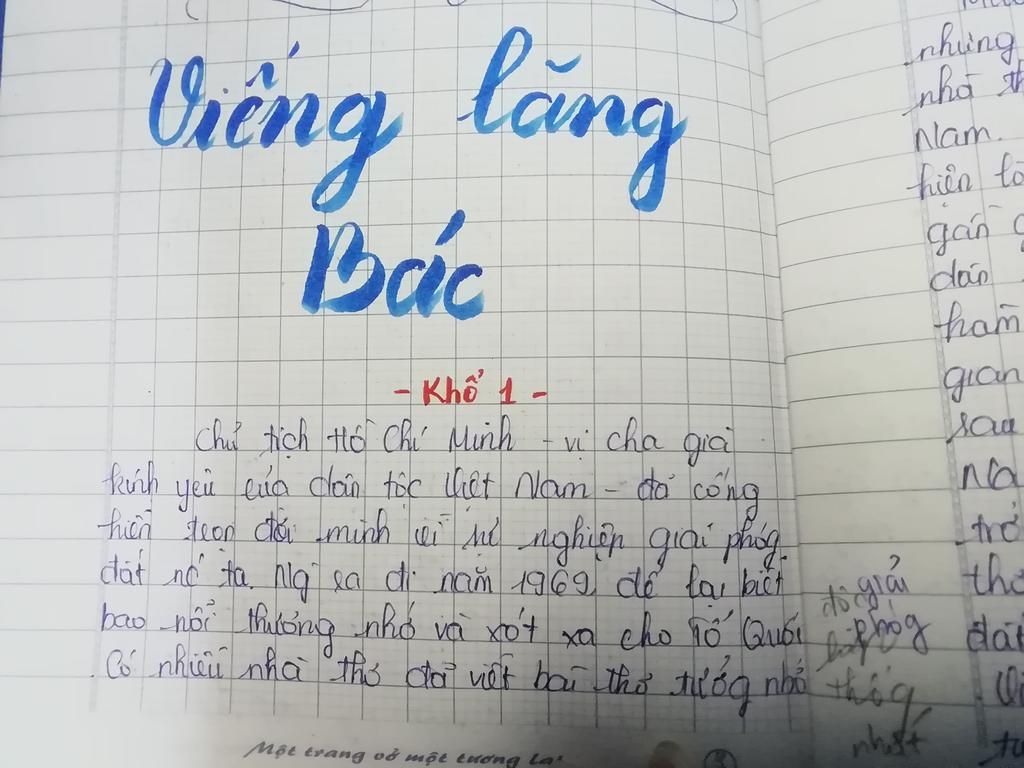 Viếng lăng
Bác
- Khổ 1 -
Chủ tịch Hồ Chí Minh - vị cha già
kính yêu của dân tộc Việt Nam - đã cống
hiến trọn đời mình vì sự nghiệp giải phóg
đất nc ta. Ng ra đi năm 1969, để lại biết
bao nỗi thương nhớ và xót xa cho
Có nhiều nhà thơ đã viết bài thơ tưởg nhớ
độc giải
phóg
thốg
nhất
Một trang vở một tương lai
những
nhà th
Nam.
hiện
gần
dân
hàm
gian
sau
Na
trở
thơ
đất